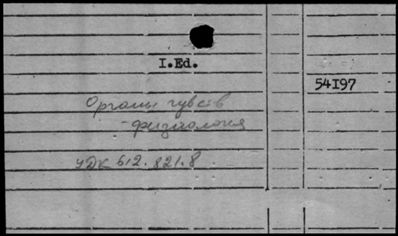 I.Ed.
54I97
Органы чувств
- физиология
УДК 612.821.8